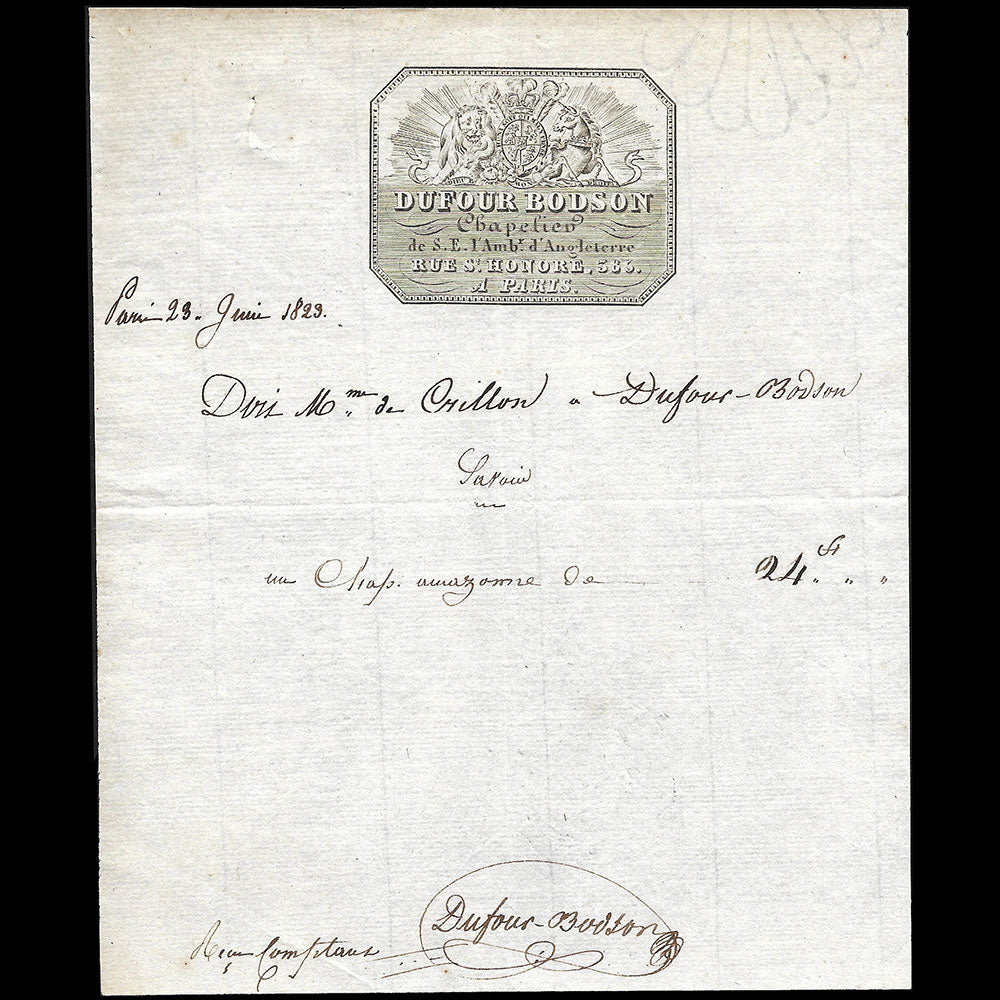 DIEU ET MON DROIT
DUFOUR BODSON
Chapelier
de S. E. l'Ambr. d'Angleterre
RUE St. HONORE, 363.
A PARIS.
Paris 23. Juin 1823.
Doit Mme de Crillon a Dufour-Bodson
Savoir
un Chap. amazonne de 24 fr " "
Reçu Comptant
Dufour-Bodson